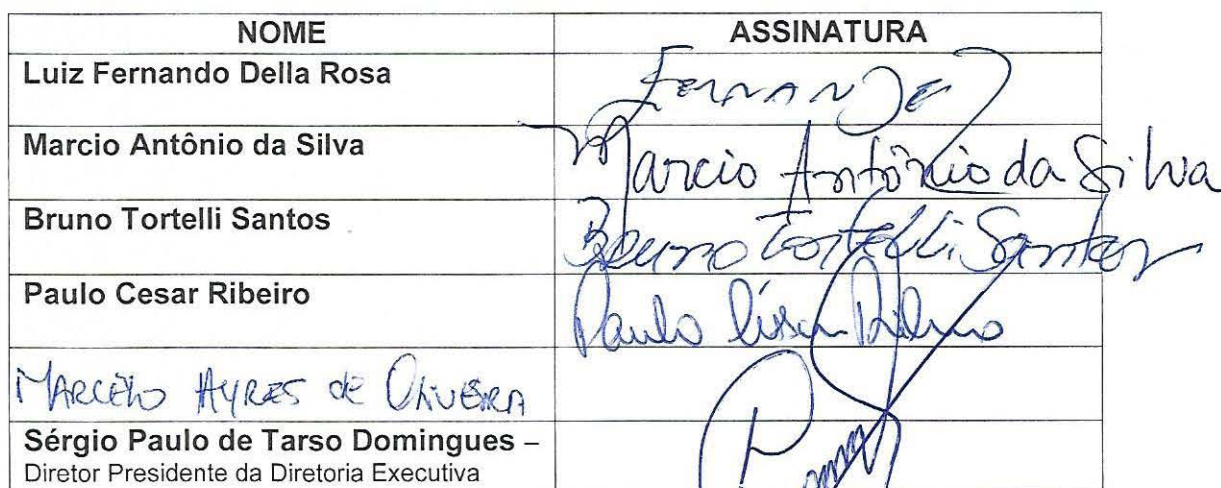 NOME ASSINATURA
Luiz Fernando Della Rosa
Marcio Antônio da Silva Marcio Antônio da Silva
Bruno Tortelli Santos Bruno Tortelli Santos
Paulo Cesar Ribeiro Paulo César Ribeiro
MARCELO AYRES DE OLIVEIRA
Sérgio Paulo de Tarso Domingues –
Diretor Presidente da Diretoria Executiva